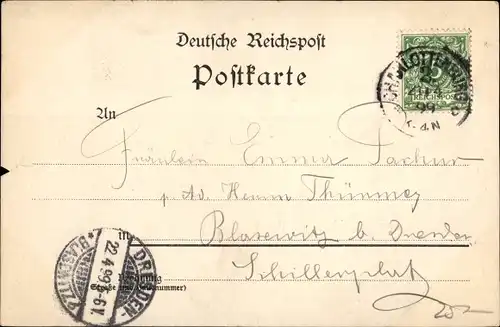 Deutsche Reichspost
Postkarte
CHARLOTTENBURG
2
99
4-N
5
REICHSPOST
An
Fräulein Emma
p. Ad. Herrn Thürmey
in Blasewitz b. Dresden
Schillerplatz
Wohnung
(Straße und Hausnummer)
DRESDEN-
BLASEWITZ
22.4.99. 6-V.